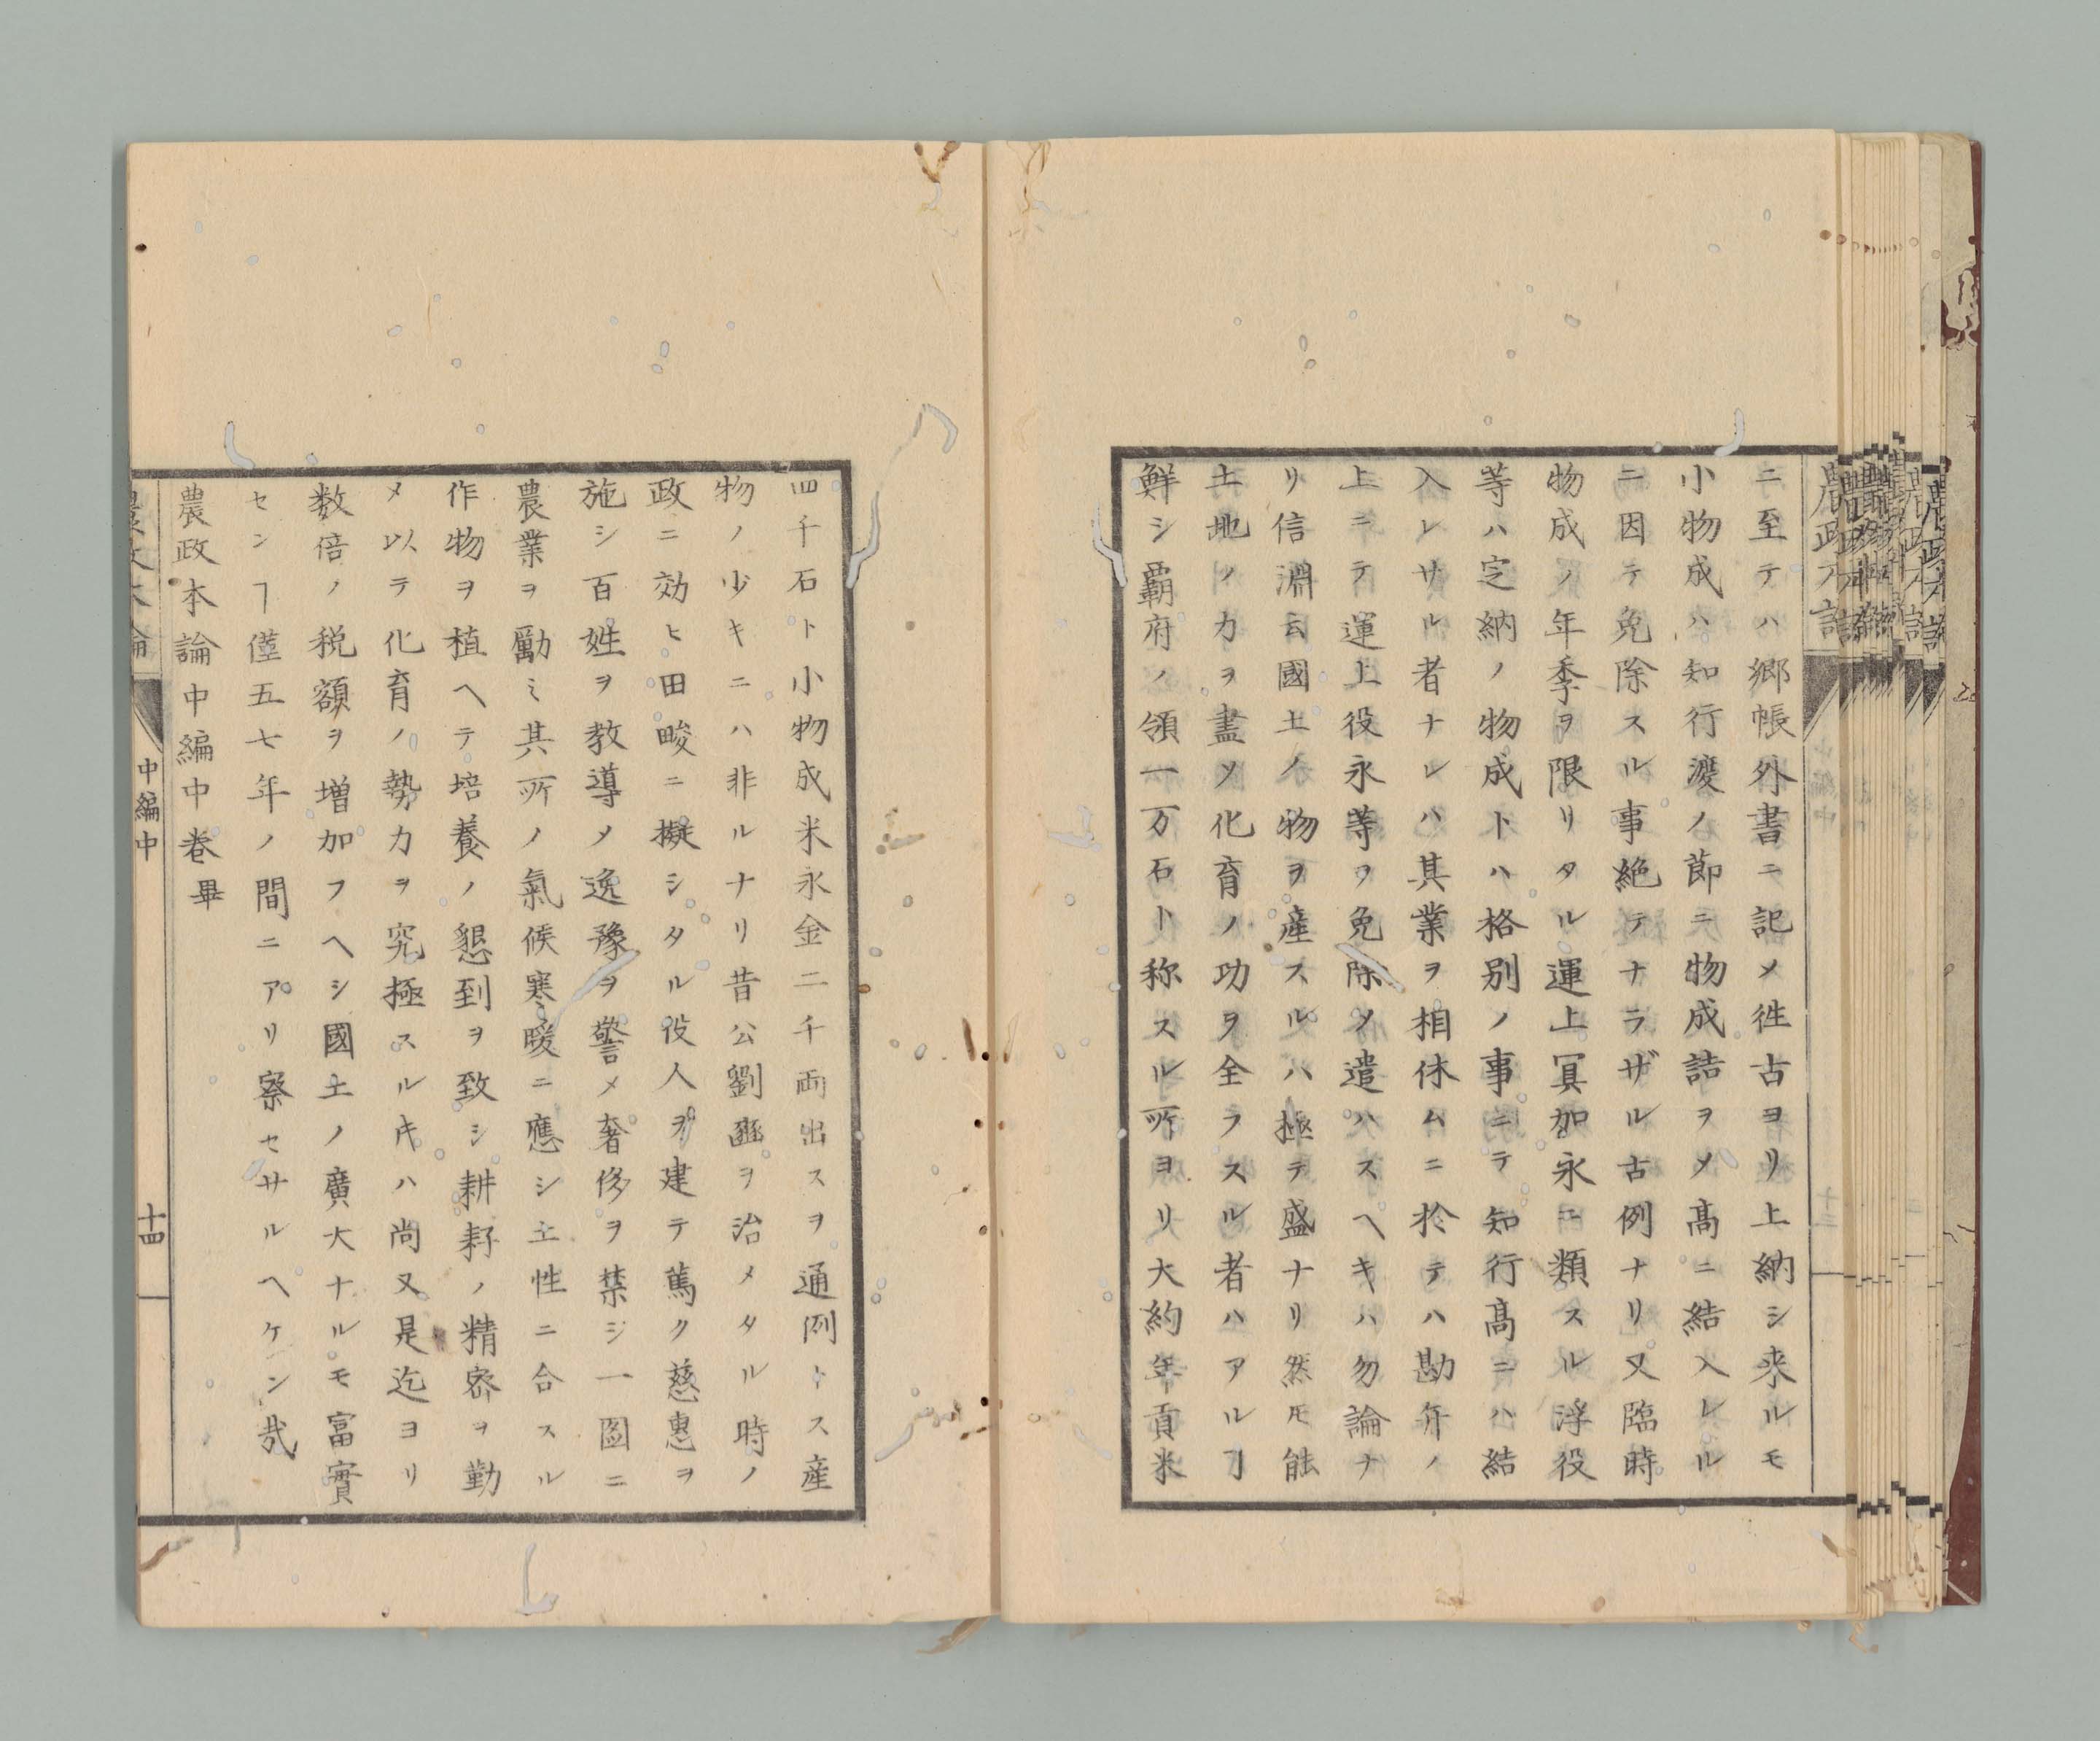 ニ至テハ郷帳外書ニ記メ徃古ヨリ上納シ来ルモ
小物成ハ知行渡ノ節ニ物成詰ヲメ髙ニ結入レル
ニ因テ免除スル事絶テナラザル古例ナリ又臨時
物成ノ年季ヲ限リタル運上冥加永ニ類スル浮役
等ハ定納ノ物成トハ格别ノ事ニテ知行髙ニハ結
入レサル者ナレハ其業ヲ相休ムニ於テハ勘弁ノ
上ニテ運上役永等ヲ免除メ遣ハスヘキハ勿論ナ
リ信淵云國土ノ物ヲ産スルハ極テ盛ナリ然𪜈能
土地ノ力ヲ盡ソ化育ノ功ヲ全ラスル者ハアルヿ
鮮シ覇府ノ領一万石ト称スル所ヨリ大約年貢米
四千石ト小物成米永金二千両出スヲ通例トス産
物ノ少キニハ非ルナリ昔公劉豳ヲ治メタル時ノ
政ニ効ヒ田畯ニ擬シタル役人ヲ建テ篤ク慈惠ヲ
施シ百姓ヲ教導メ逸豫ヲ警メ奢侈ヲ禁ジ一圖ニ
農業ヲ勵ミ其所ノ氣候寒暖ニ應シ土性ニ合スル
作物ヲ植ヘテ培養ノ懇到ヲ致シ耕耔ノ精密ヲ勤
メ以テ化育ノ勢力ヲ究極スルキハ尚又是迄ヨリ
数倍ノ税額ヲ増加フヘシ國土ノ廣大ナルモ富實
センヿ僅五七年ノ間ニアリ察セサルヘケンヤ哉
農政本論中編中巻畢
農政本論
中編中
十四